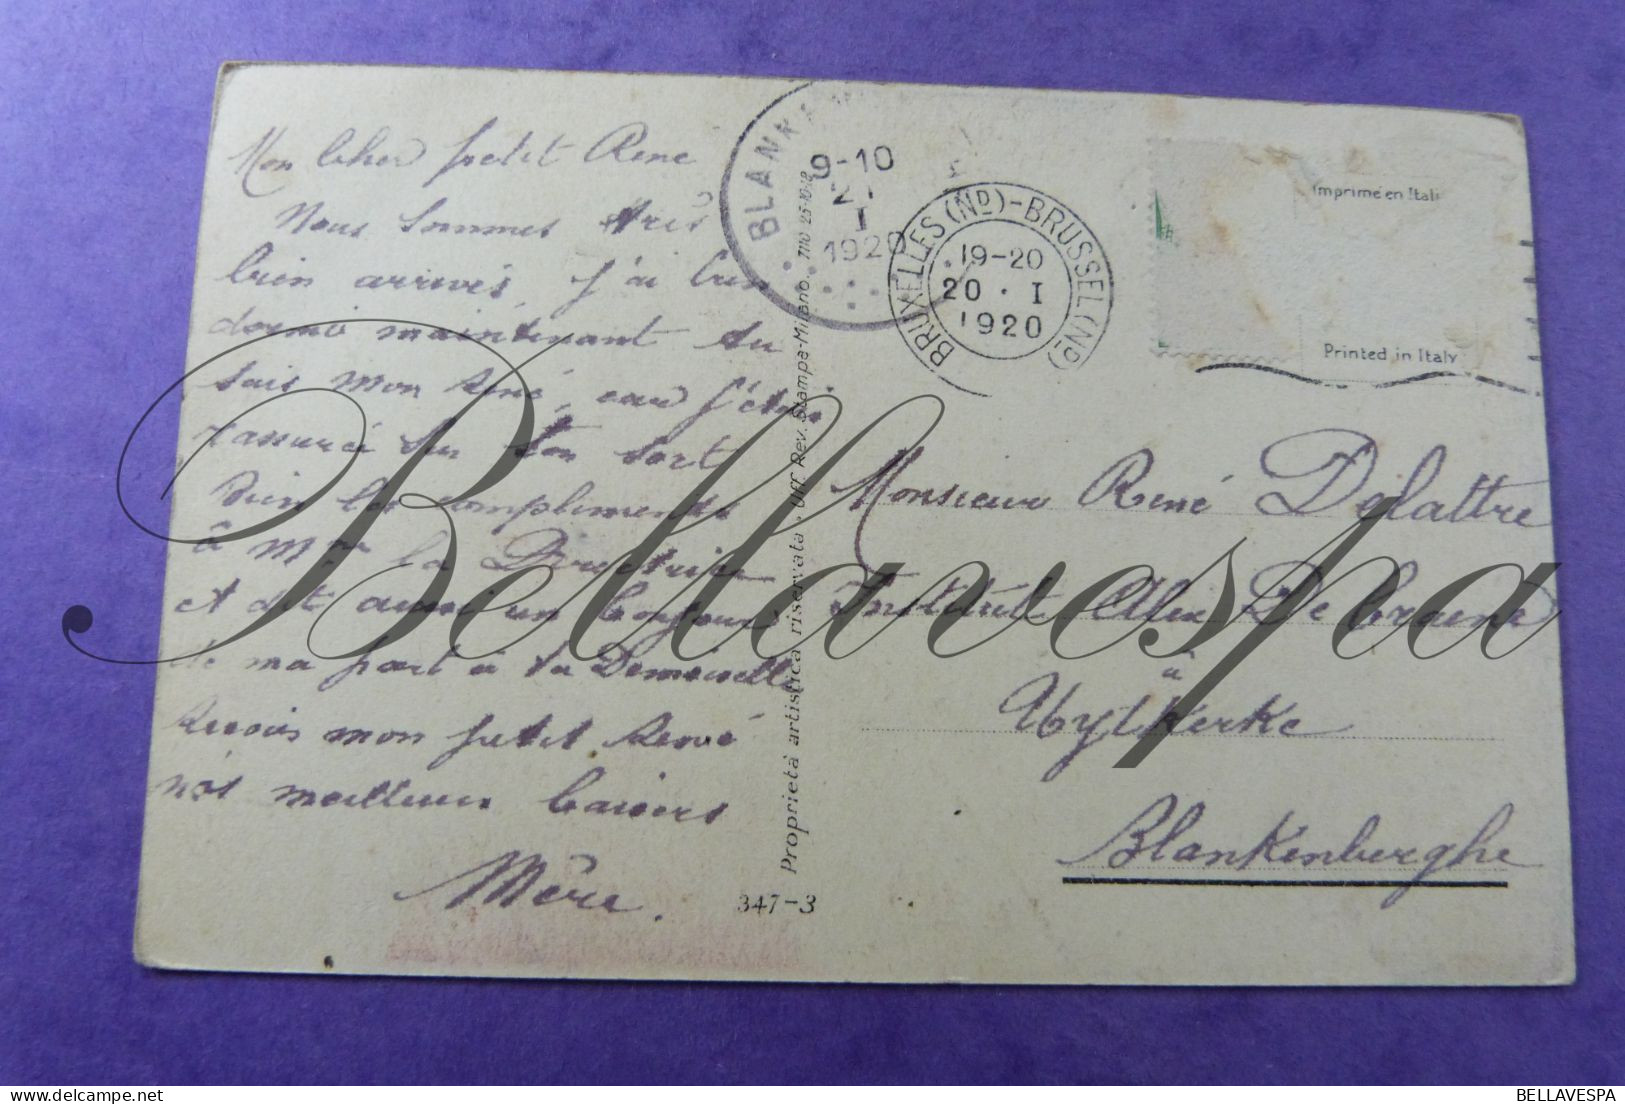 Mon Cher petit René
Nous sommes très
bien arrivés, j'ai bien
dormi maintenant tu
sais mon René, car j'étais
rassurée sur ton sort
bien les compliments
à Mme la Directrice
et dit aussi un bonjour
de ma part à ta Demoiselle
Reçois mon petit René
nos meilleurs baisers
Mère.
BLANK
9-10
I
1920
BRUXELLES (Nd)-BRUSSEL (Nd)
19-20
20 · I
1920
Imprimé en Itali
Printed in Italy
Proprietà artistica riservata - Uff. Rev. Stampa-Milano. 7110 25-10-18
347-3
Monsieur René Delattre
Institut Alix De Craene
à
Uytkerke
Blankenberghe
Bellavespa
BELLAVESPA